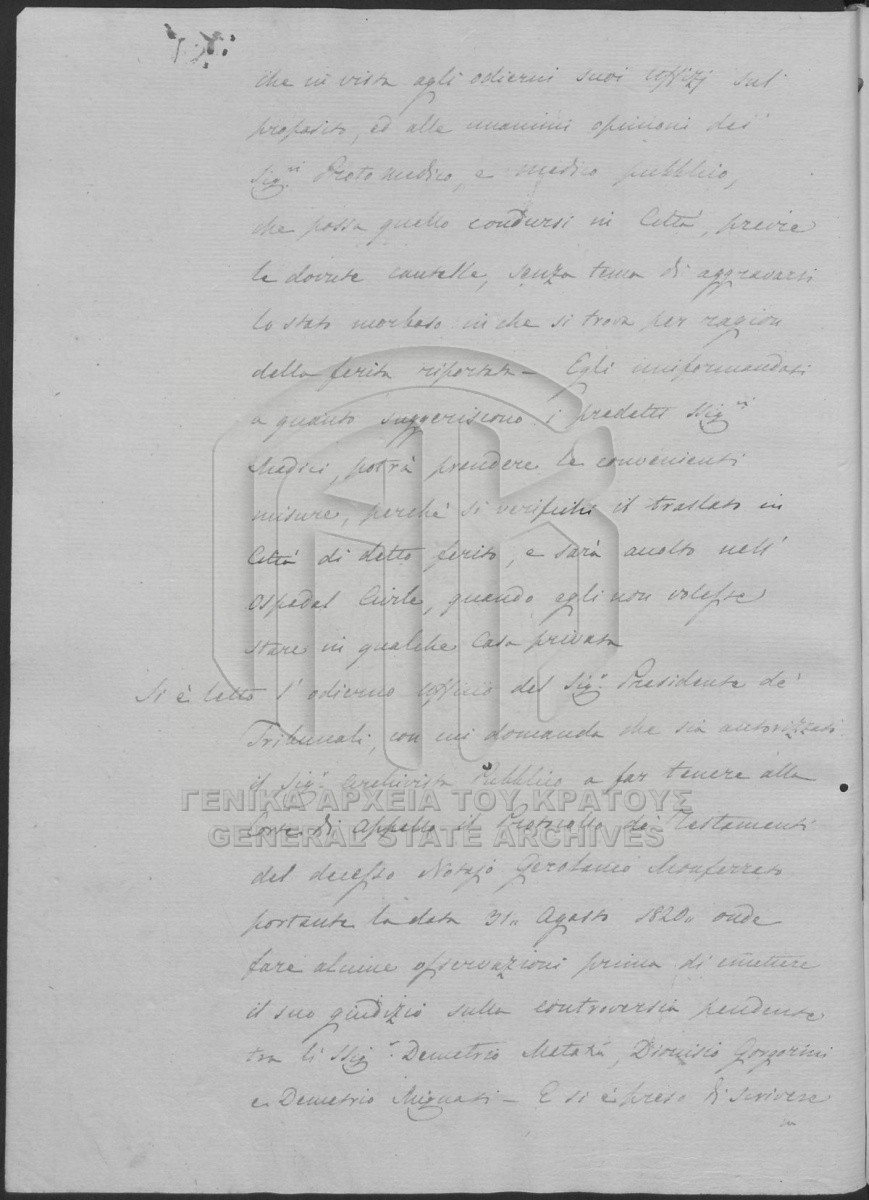 che in vista agli odierni suoi Offizj sul
proposito, ed alle unanimi opinioni dei
Sig.ri Proto medico, e medico pubblico,
che possa quello condursi in Città, previe
le dovute cautelle, senza tema di aggravarsi
lo stato morboso in che si trova per ragion
della ferita riportata — Egli uniformandosi
a quanto suggeriscono i predetti Sig.ri
Medici, potrà prendere le convenienti
misure, perchè si verifichi il traslato in
Città di detto ferito, e sarà accolto nell'
Ospedal Civile, quando egli non volesse
stare in qualche Casa privata
Si è letto l'odierno Officio del Sig.r Presidente de'
Tribunali, con cui domanda che sia autorizzato
il Sig.r Archivista Pubblico a far tenere alla
ΓΕΝΙΚΑ ΑΡΧΕΙΑ ΤΟΥ ΚΡΑΤΟΥΣ
GENERAL STATE ARCHIVES
Corte di Appello il Protocollo de' Testamenti
del decesso Notajo Gerolamo Monferrato
portante la data 31,, Agosto 1820,, onde
fare alcune osservazioni prima di emettere
il suo giudizio sulla controversia pendente
tra li Sig.ri Demetrio Metaxà, Dionisio
e Demetrio Mignati — E si è preso di scrivere